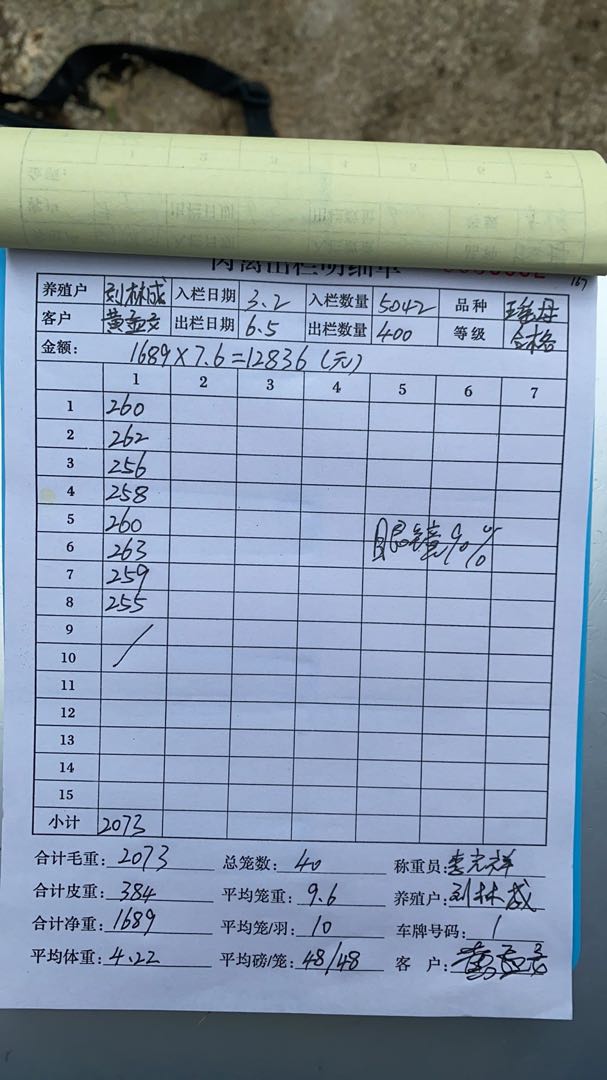 肉禽出栏明细单
167
养殖户 刘林成 入栏日期 3.2 入栏数量 5042 品种
客户 黄孟文 出栏日期 6.5 出栏数量 400 等级 合格
金额: 1689×7.6=12836(元)
1 2 3 4 5 6 7
1 260
2 262
3 256
4 258
5 260 眼镜%%
6 263
7 259
8 255
9
10
11
12
13
14
15
小计 2073
合计毛重: 2073 总笼数: 40 称重员:
合计皮重: 384 平均笼重: 9.6 养殖户: 刘林成
合计净重: 1689 平均笼/羽: 10 车牌号码: 1
平均体重: 4.22 平均磅/笼: 48/48 客 户: